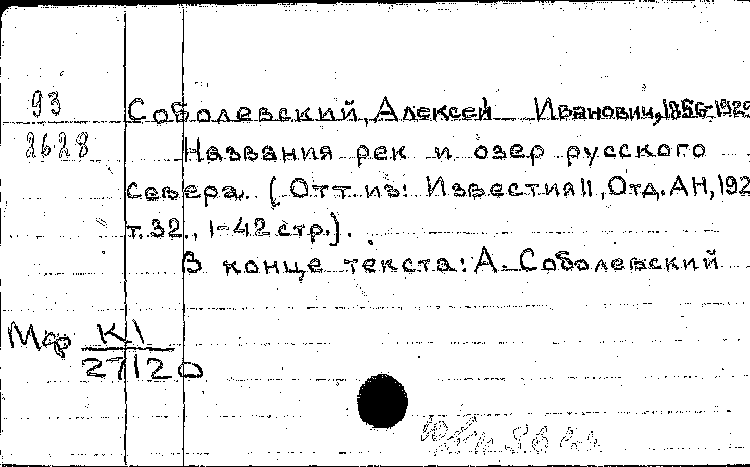 93
2628
Соболевский, Алексей Иванович, 1856-1929
Названия рек и озер русского
севера. (Отт. из: Известия II, Отд. АН, 192
т. 32, 1-42 стр.).
В конце текста: А. Соболевский
Мф К1
27120